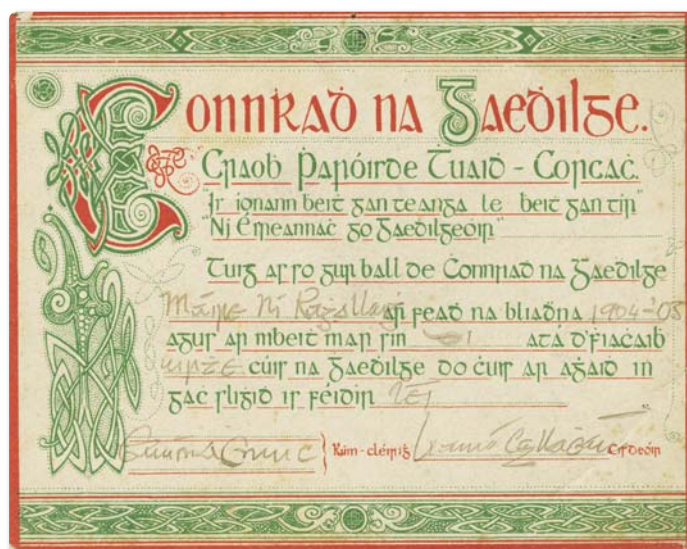 Connraḋ na Gaeḋilge.
Craoḃ Paróisde Tuaiḋ - Corcaċ.
"Is ionann beiṫ gan teanga le beiṫ gan tír"
"Ní Éireannaċ go Gaeḋilgeóir"
Tuig as so gur ball de Ċonnraḋ na Gaeḋilge
Máire Ní Raġallaiġ ar feaḋ na bliaḋna 1904-'05
agus ar mbeiṫ mar sin di atá d'fiaċaiḃ
uirṫe cúis na Gaeḋilge do ċur ar aġaiḋ in
gaċ sliġiḋ is féidir léi
Rúm-cléiriġ Cisdeóir